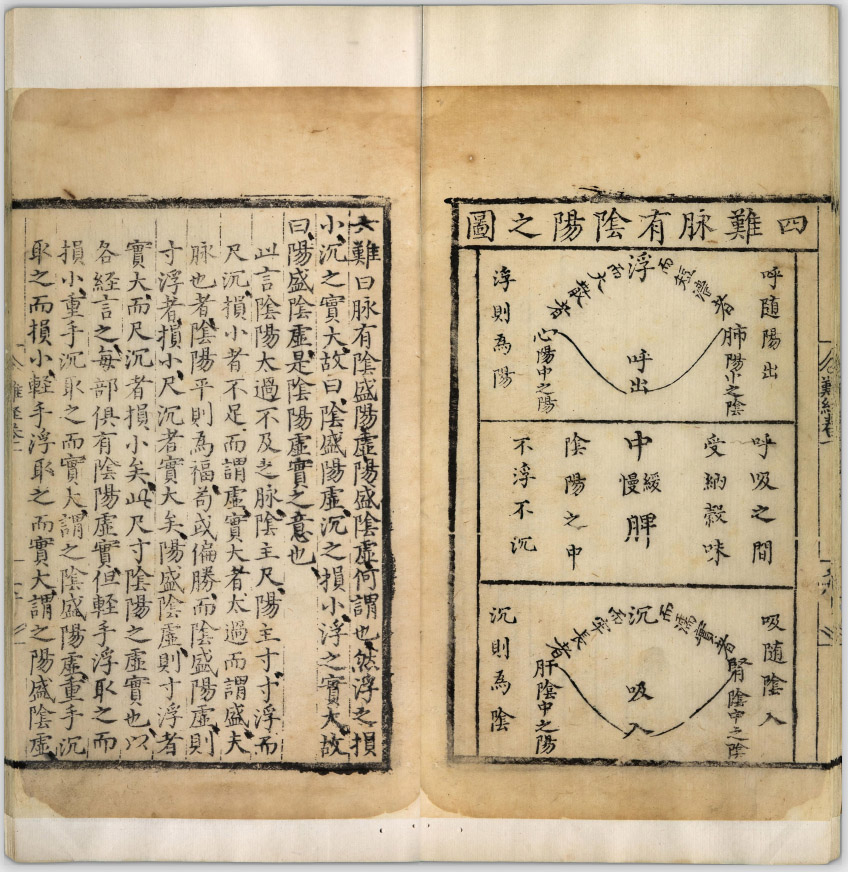 四難脉有陰陽之圖
呼隨陽出
浮而短濇者
肺陽中之陰
呼出
浮而大散者
心陽中之陽
浮則為陽
呼吸之間
受納穀味
中
緩慢
脾
陰陽之中
不浮不沉
吸隨陰入
沉而濡實者
腎陰中之陰
吸入
牢長者
肝陰中之陽
沉則為陰
難經卷一
六難曰脉有陰盛陽虛陽盛陰虛何謂也然浮之損
小沉之實大故曰陰盛陽虛沉之損小浮之實大故
曰陽盛陰虛是陰陽虛實之意也
此言陰陽太過不及之脉陰主尺陽主寸寸浮而
尺沉損小者不足而謂虛實大者太過而謂盛夫
脉也者陰陽平則為福苟或偏勝而陰盛陽虛則
寸浮者損小尺沉者實大矣陽盛陰虛則寸浮者
實大而尺沉者損小矣此尺寸陰陽之虛實也以
各經言之每部俱有陰陽虛實但輕手浮取之而
損小重手沉取之而實大謂之陰盛陽虛重手沉
取之而損小輕手浮取之而實大謂之陽盛陰虛